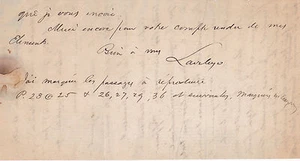 que je vous envoie
Merci encore pour votre compte rendu de mes
Bien à vous
J'ai marqué les passages à reproduire
P. 23 @ 25 & 26, 27, 29, 36 et suivantes, marqués